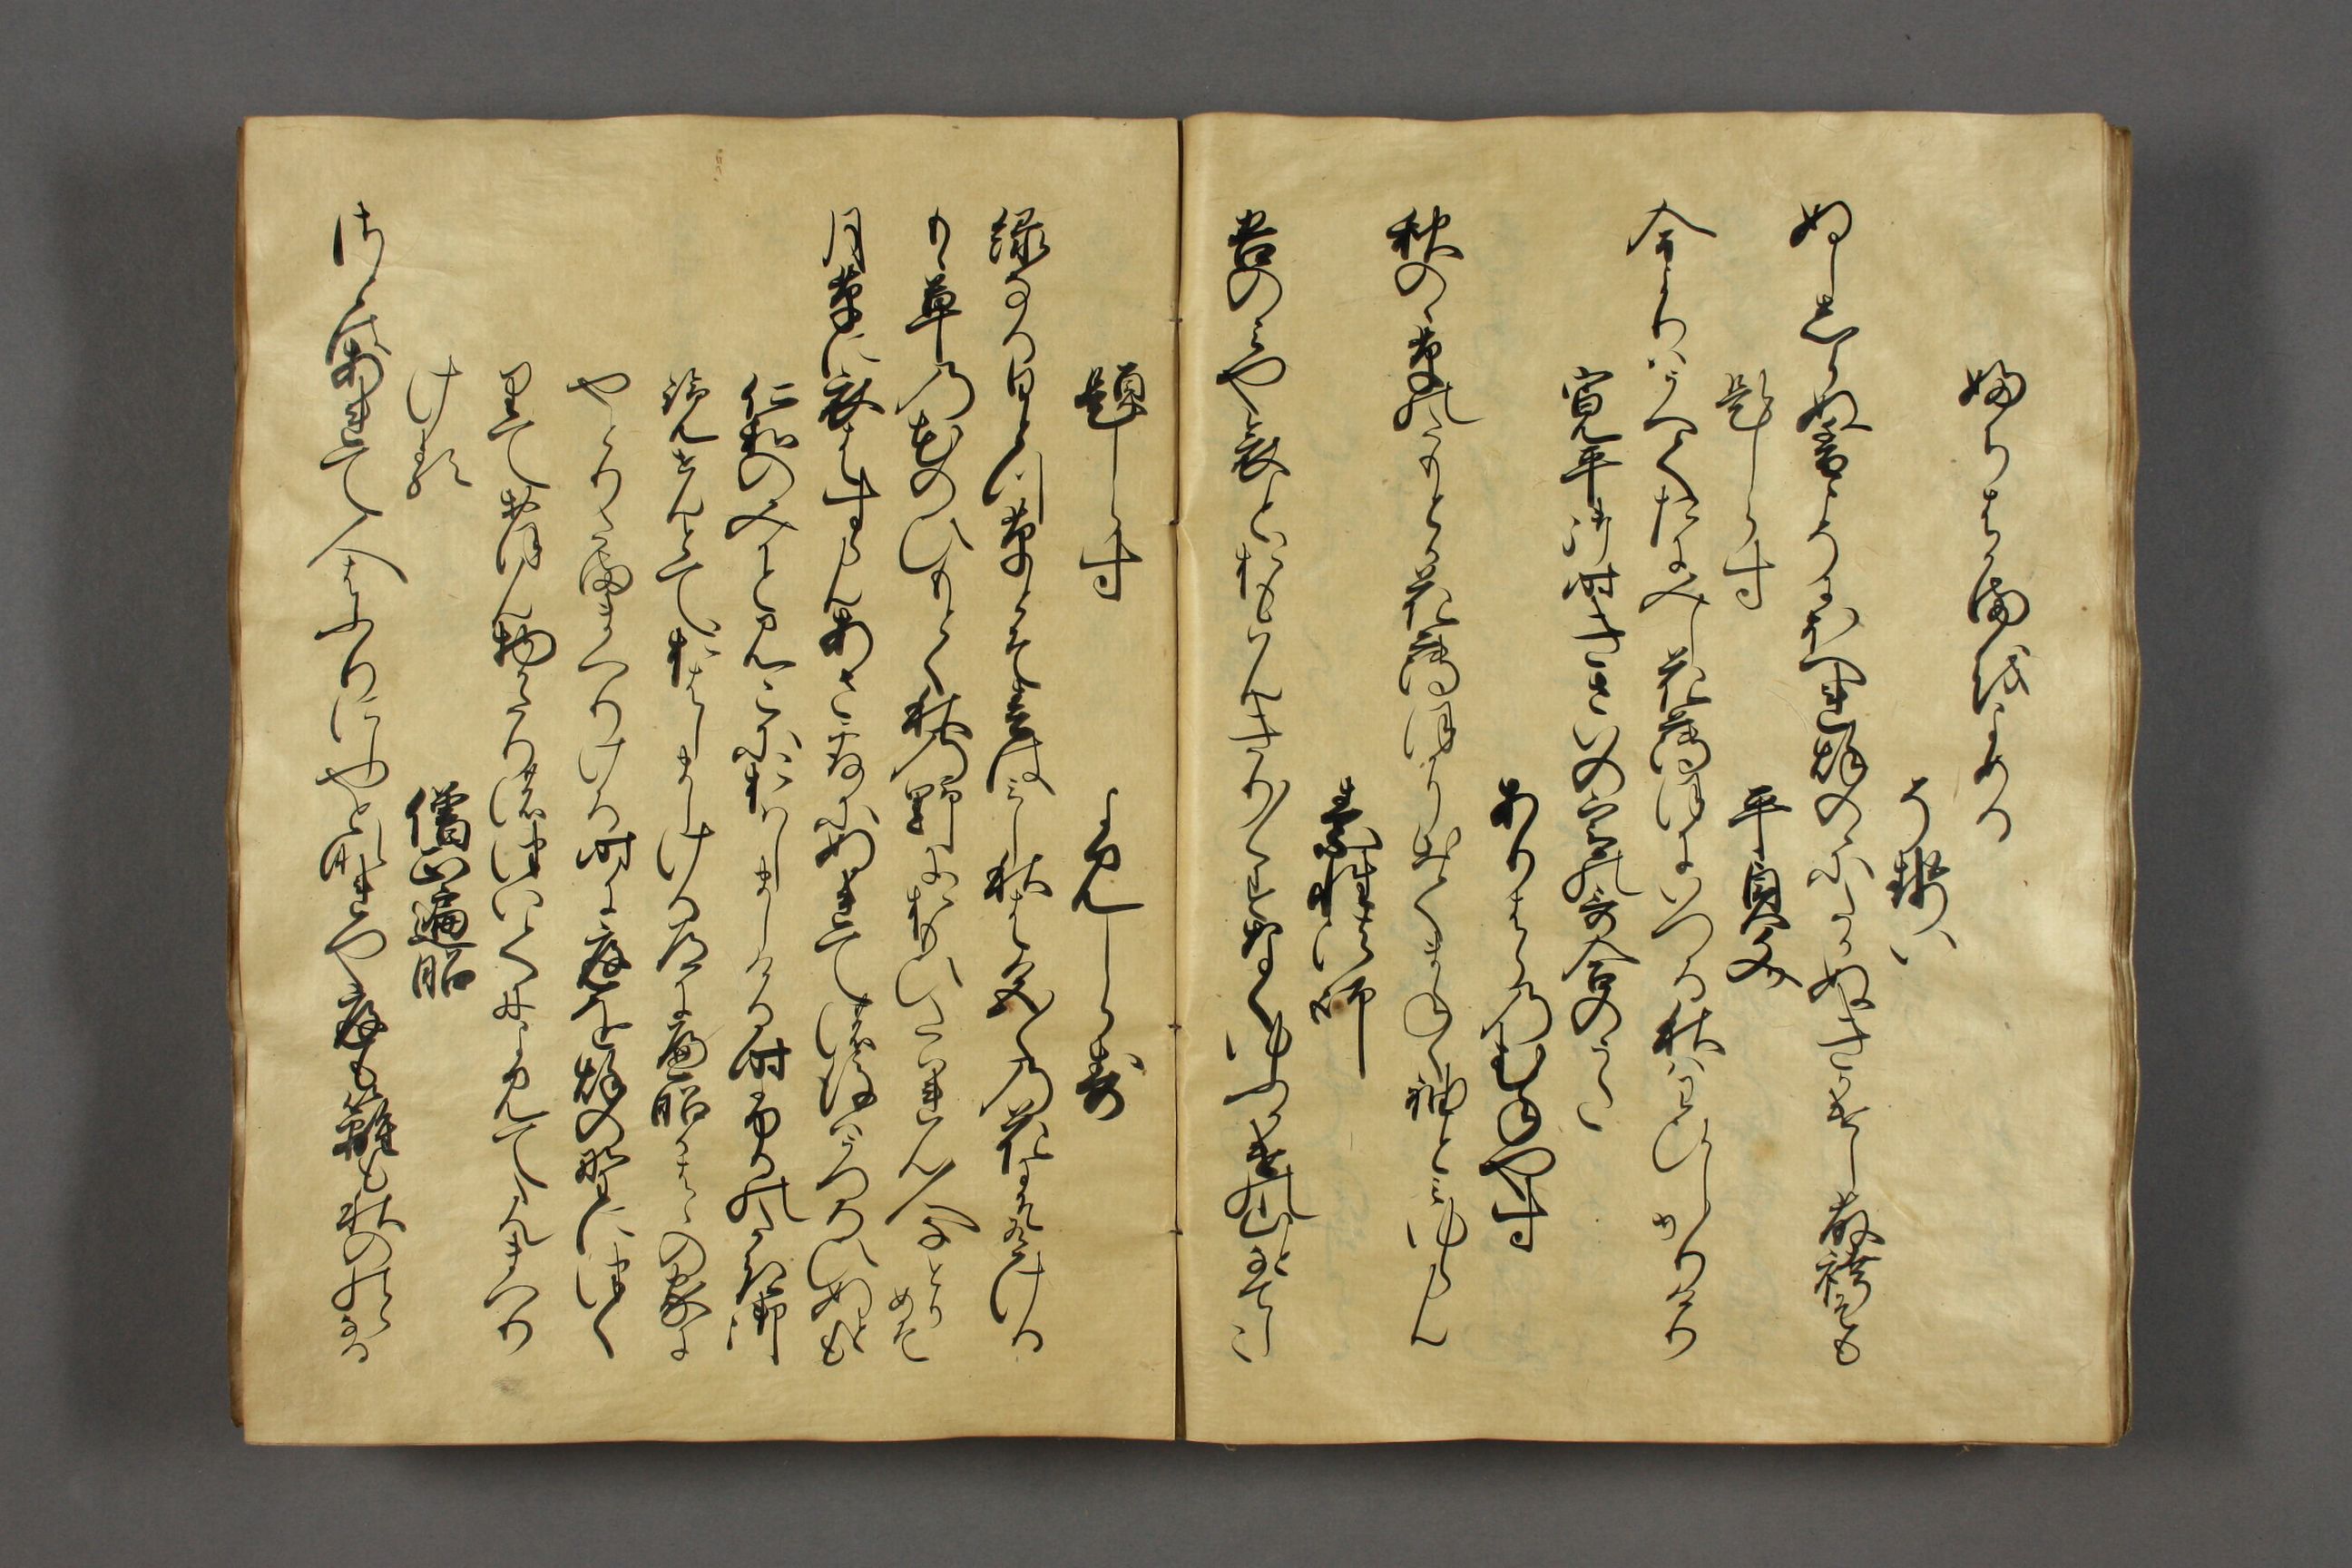 ふちはかまをよめる
そせい
ぬししらぬ香こそにほへれ秋の野にたかぬきかけし藤袴そも
題しらす
平貞文
今よりはうへてたにみし花薄ほにいつる秋はわひしかりけり
寛平御時きさいの宮の哥合のうた
ありはらのむねやな
秋の草のたもとか花薄ほにいてゝまねく袖とみゆらん
素性法師
我のみや哀とおもはんきり/\すなくゆふかけの山となてしこ
題しらす
よみ人しらす
緑なるひとつ草とそ春はみし秋は色/\の花にそ有ける
もゝ草の花のひもとく秋の野に思ひたはれん人なとかめそ
月草に衣はすらんあさ露にぬれての後はうつろひぬとも
仁和のみかとみこにおはしましける時ふるのたき御
覧せんとておはしましける道に遍昭かはゝの家に
やとりたまへりける時に庭を秋の野につく
りておほん物かたりのつゐてによみてたてまつり
ける
僧正遍昭
さとはあれて人はふりにしやとなれや庭も籬も秋の野らなる